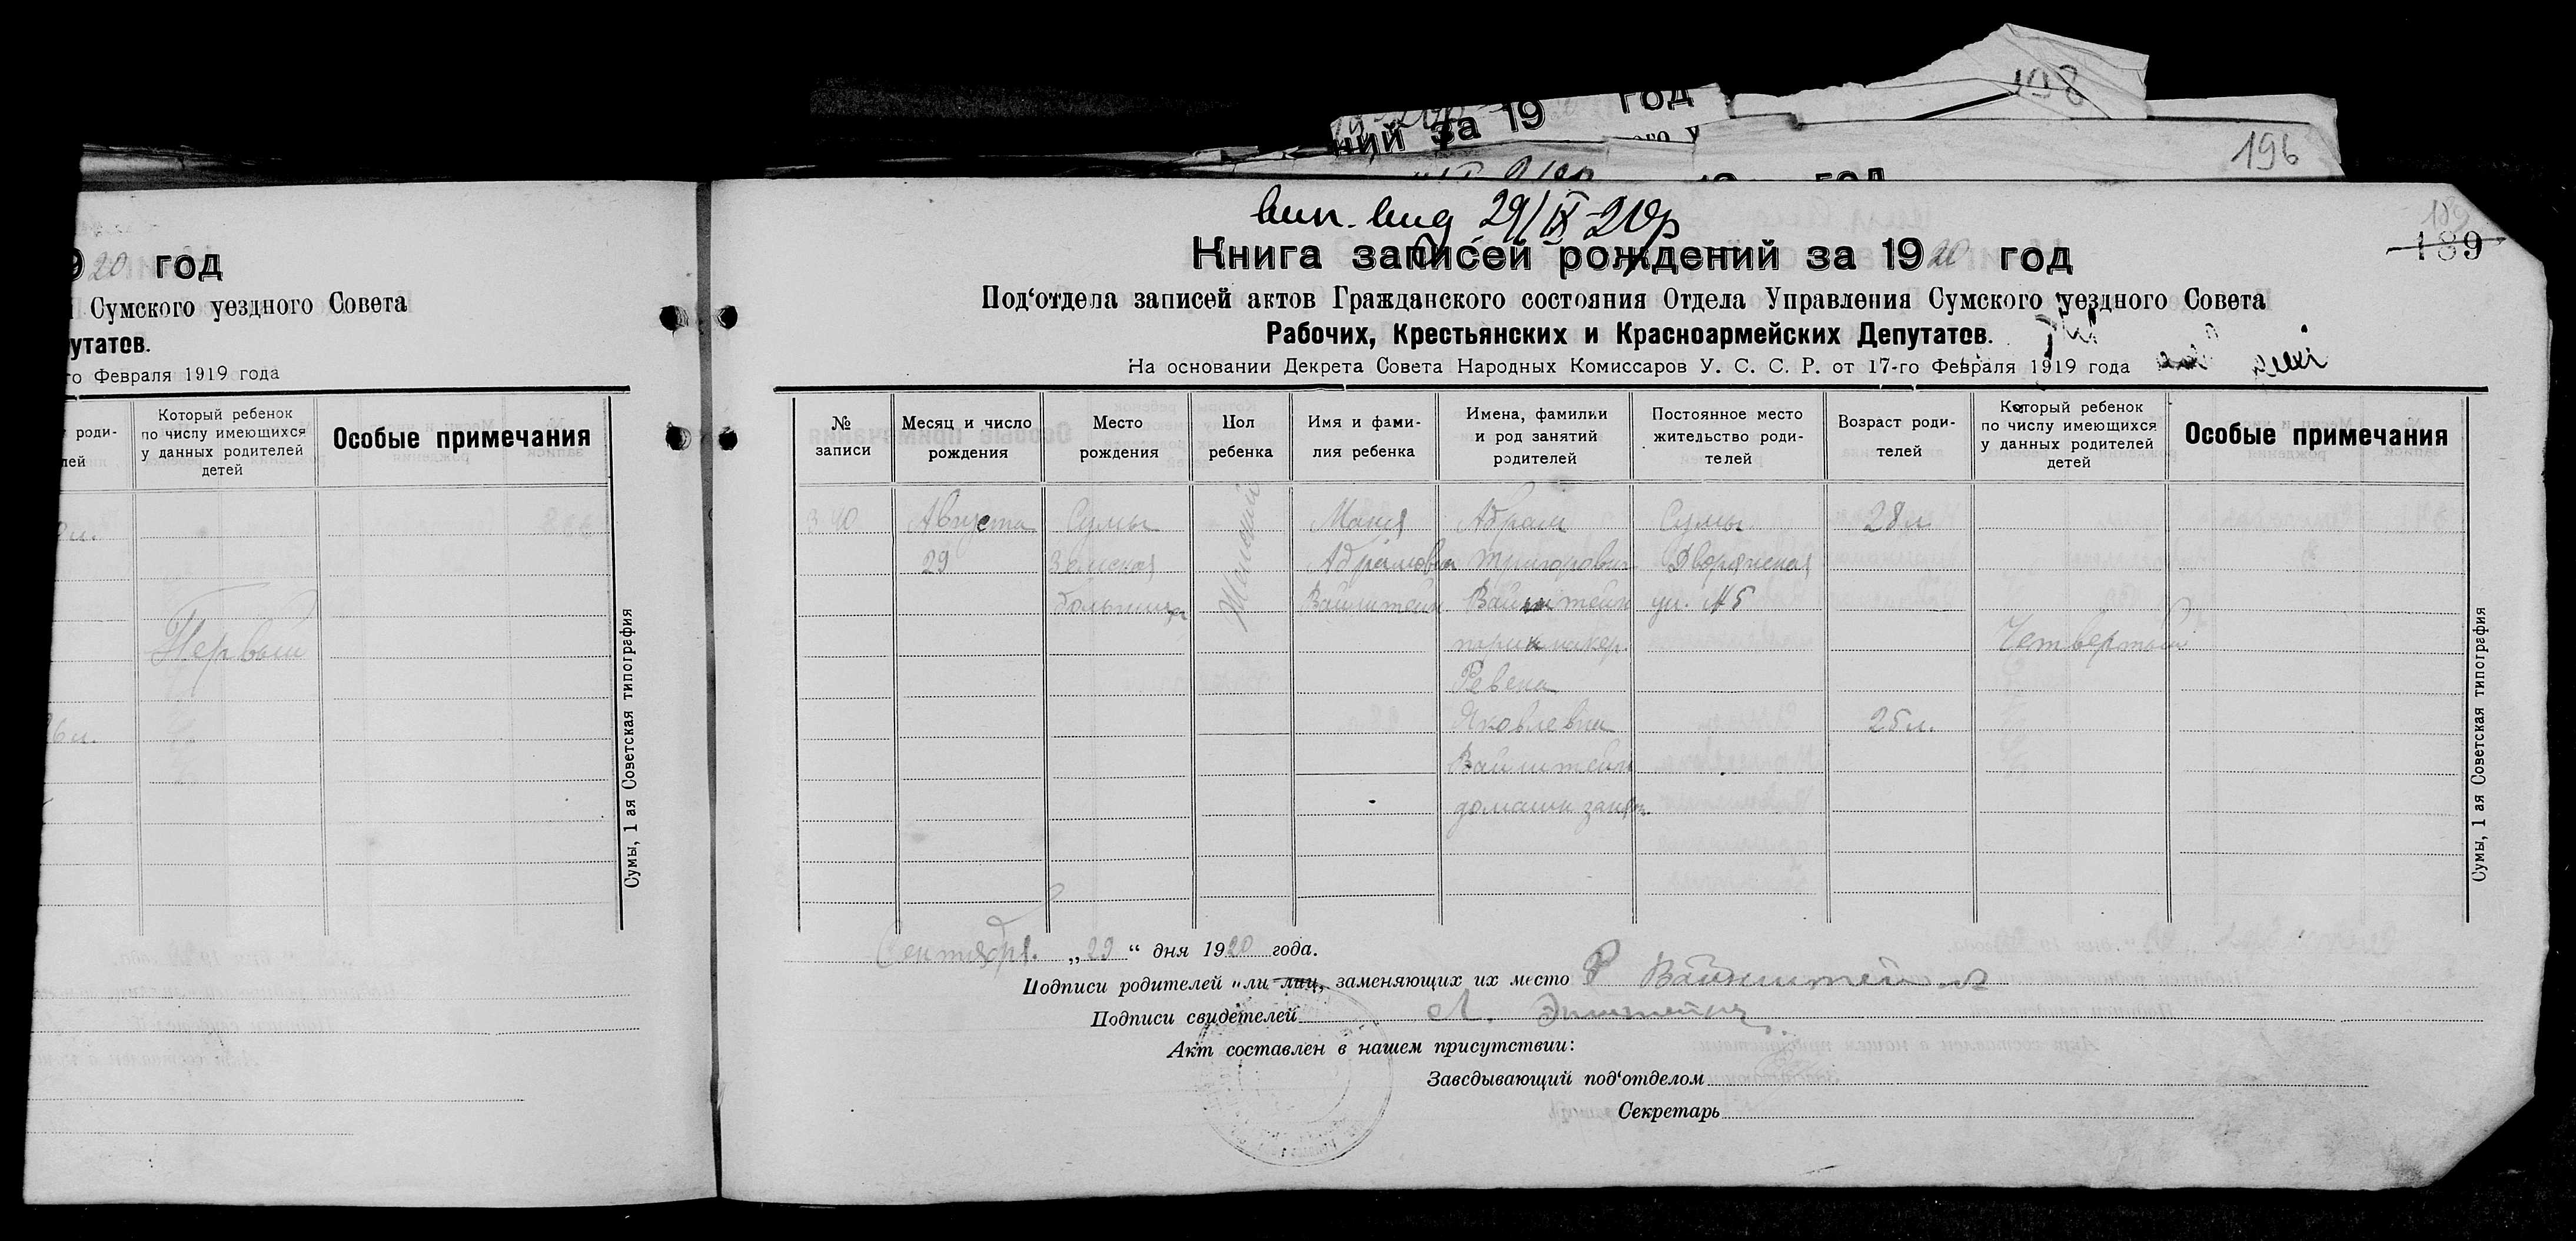 198
ний за 19 год
196
год
вип. вид 29/IX-20р
189
189
Книга записей рождений за 1920 год
Под‘отдела записей актов Гражданского состояния Отдела Управления Сумского уездного Совета
Рабочих, Крестьянских и Красноармейских Депутатов.
На основании Декрета Совета Народных Комиссаров У. С. С. Р. от 17-го Февраля 1919 года
№ записи
Месяц и число рождения
Место рождения
Пол ребенка
Имя и фамилия ребенка
Имена, фамилии и род занятий родителей
Постоянное место жительство родителей
Возраст родителей
Который ребенок по числу имеющихся у данных родителей детей
Особые примечания
340
Августа
29
Сумы
Земская
больница
Женский
Маня
Абрамовна
Вайнштейн
Абрам
Вайнштейн
Ревека
Яковлевна
Вайнштейн
домашн занят.
Сумы
Дворянская
ул. №5
28л.
25л.
Четвертый
Сентября. „29“ дня 1920 года.
Подписи родителей или лиц, заменяющих их место Р Вайнштейн
Подписи свидетелей
Акт составлен в нашем присутствии:
Заведывающий под‘отделом
Секретарь
Сумы, 1 ая Советская типография
920 год
Сумского уездного Совета
утатов.
го Февраля 1919 года
роди-
лей
Который ребенок по числу имеющихся у данных родителей детей
Особые примечания
Первый
6л.
Сумы, 1 ая Советская типография